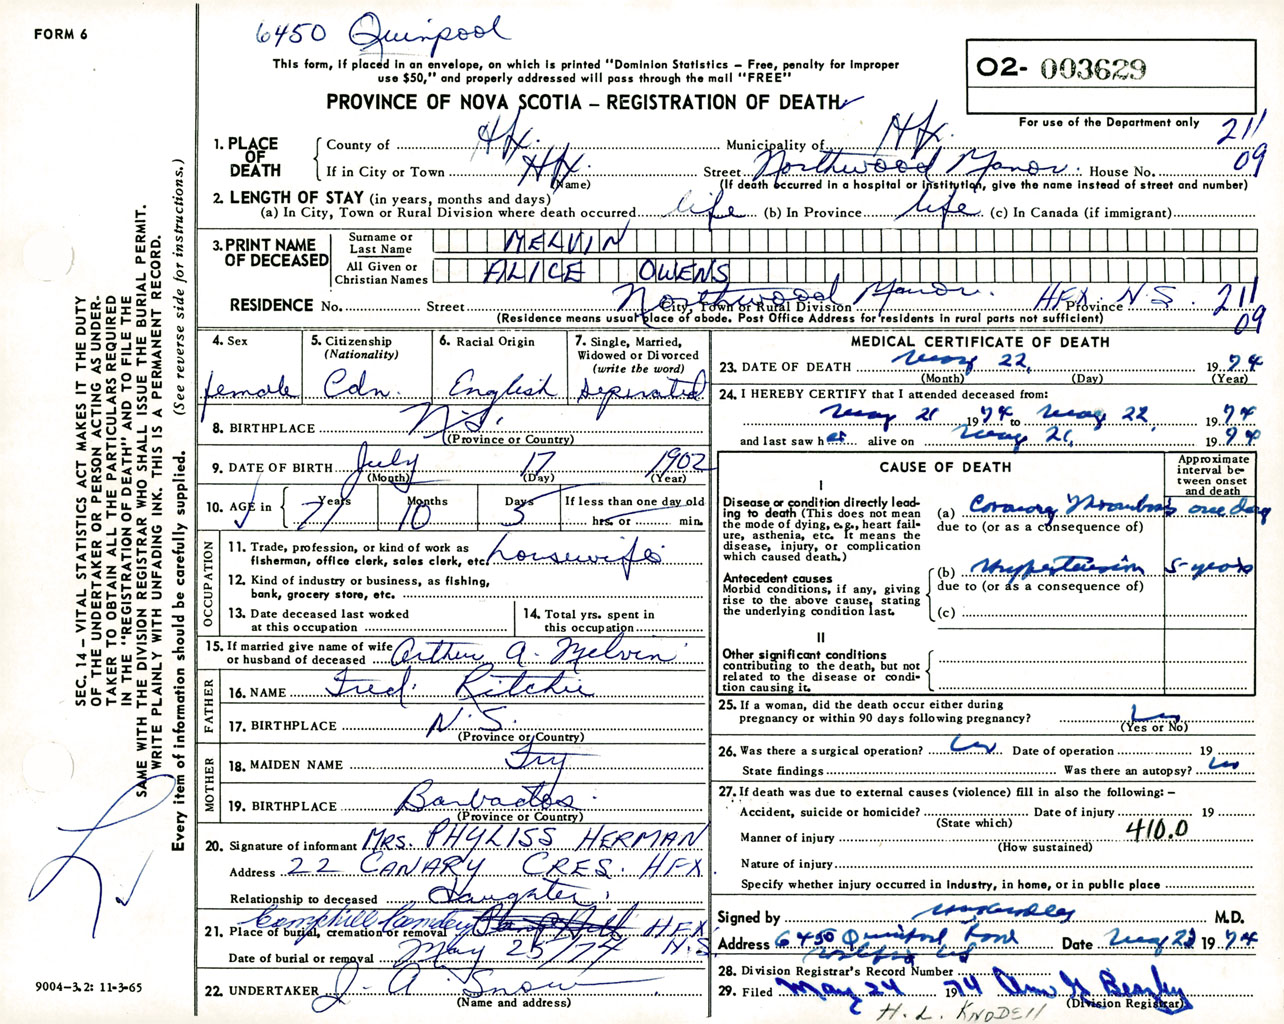 FORM 6
6450 Quinpool
This form, if placed in an envelope, on which is printed "Dominion Statistics – Free, penalty for improper
use $50," and properly addressed will pass through the mail "FREE"
O2- 003629
PROVINCE OF NOVA SCOTIA – REGISTRATION OF DEATH
For use of the Department only
211
09
1. PLACE OF DEATH
County of Hfx. Municipality of Hfx.
If in City or Town Hfx. Street Northwood Manor. House No.
(Name) (If death occurred in a hospital or institution, give the name instead of street and number)
2. LENGTH OF STAY (in years, months and days)
(a) In City, Town or Rural Division where death occurred life (b) In Province life (c) In Canada (if immigrant)
3. PRINT NAME OF DECEASED
Surname or Last Name MELVIN
All Given or Christian Names ALICE OWENS
RESIDENCE No. Street Northwood Manor. HFX. N.S. 211
City, Town or Rural Division Province 09
(Residence means usual place of abode. Post Office Address for residents in rural parts not sufficient)
4. Sex female
5. Citizenship (Nationality) Cdn.
6. Racial Origin English
7. Single, Married, Widowed or Divorced (write the word) seperated
8. BIRTHPLACE N.S.
(Province or Country)
9. DATE OF BIRTH July 17 1902
(Month) (Day) (Year)
10. AGE in Years 71 Months 10 Days 5 If less than one day old hrs. or min.
OCCUPATION
11. Trade, profession, or kind of work as
fisherman, office clerk, sales clerk, etc. housewife
12. Kind of industry or business, as fishing,
bank, grocery store, etc.
13. Date deceased last worked
at this occupation
14. Total yrs. spent in
this occupation
15. If married give name of wife
or husband of deceased Arthur A. Melvin
FATHER
16. NAME Fred Ritchie
17. BIRTHPLACE N.S.
(Province or Country)
MOTHER
18. MAIDEN NAME Fry
19. BIRTHPLACE Barbados.
(Province or Country)
20. Signature of informant MRS. PHYLISS HERMAN
Address 22 CANARY CRES. HFX.
Relationship to deceased daughter.
21. Place of burial, cremation or removal Camphill Cemetery HFX
N.S.
Date of burial or removal May 25/74
22. UNDERTAKER J. A. Snow
(Name and address)
MEDICAL CERTIFICATE OF DEATH
23. DATE OF DEATH May 22, 1974
(Month) (Day) (Year)
24. I HEREBY CERTIFY that I attended deceased from:
May 21 1974 to May 22, 1974
and last saw her alive on May 21, 1974
CAUSE OF DEATH
Approximate interval between onset and death
I
Disease or condition directly leading
to death (This does not mean
the mode of dying, e.g., heart failure,
asthenia, etc. It means the
disease, injury, or complication
which caused death.)
(a) Coronary Thrombosis one day
due to (or as a consequence of)
Antecedent causes
Morbid conditions, if any, giving
rise to the above cause, stating
the underlying condition last.
(b) Hypertension 5 years
due to (or as a consequence of)
(c)
II
Other significant conditions
contributing to the death, but not
related to the disease or condition
causing it.
25. If a woman, did the death occur either during
pregnancy or within 90 days following pregnancy?
(Yes or No)
26. Was there a surgical operation? Date of operation 19
State findings Was there an autopsy?
27. If death was due to external causes (violence) fill in also the following: –
Accident, suicide or homicide? Date of injury 19
(State which)
Manner of injury 410.0
(How sustained)
Nature of injury
Specify whether injury occurred in Industry, in home, or in public place
Signed by M.D.
Address 6450 Quinpool Road Date May 22 1974
28. Division Registrar's Record Number
29. Filed May 24 1974
(Division Registrar)
H. L. KNODELL
9004-3.2: 11-3-65
SEC. 14 – VITAL STATISTICS ACT MAKES IT THE DUTY
OF THE UNDERTAKER OR PERSON ACTING AS UNDERTAKER
TO OBTAIN ALL THE PARTICULARS REQUIRED
IN THE "REGISTRATION OF DEATH" AND TO FILE THE
SAME WITH THE DIVISION REGISTRAR WHO SHALL ISSUE THE BURIAL PERMIT.
WRITE PLAINLY WITH UNFADING INK. THIS IS A PERMANENT RECORD.
Every item of information should be carefully supplied. (See reverse side for instructions.)